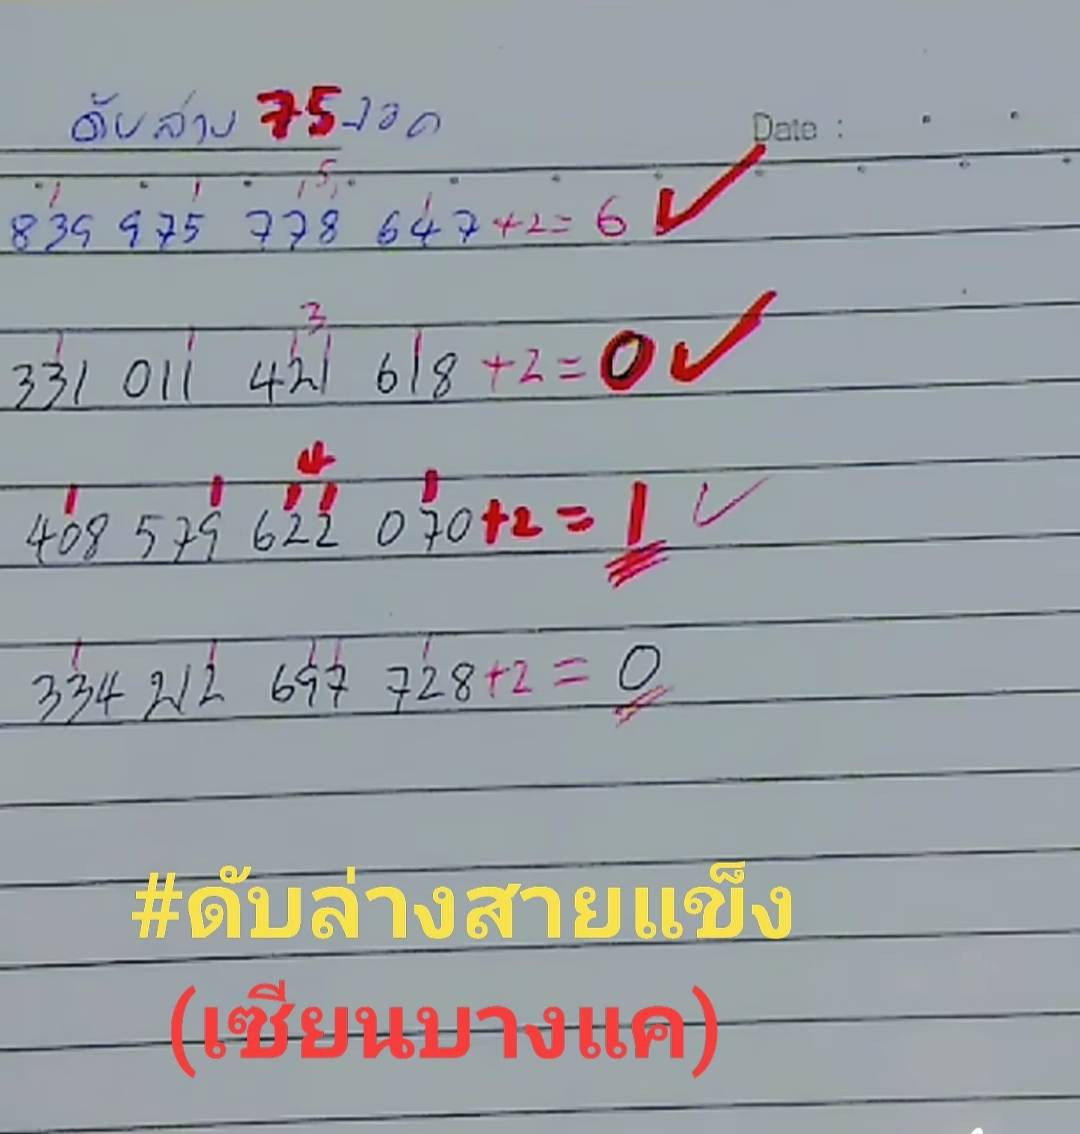 ดับล่าง 75 งวด
Date :
839 975 778 647 +2= 6
3
331 011 421 618 +2= 0
408 579 622 070 +2 = 1
334 212 697 728 +2 = 0
#ดับล่างสายแข็ง
(เซียนบางแค)